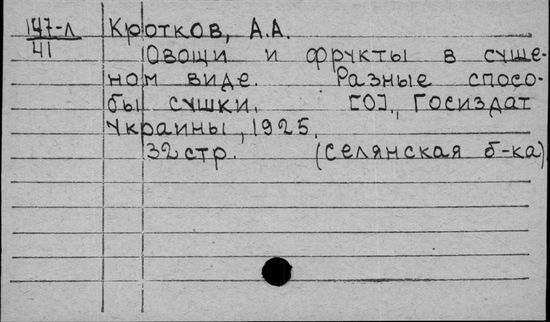 147-л Кротков, А.А.
41
Овощи и фрукты в суше-
ном виде. Разные спосо-
бы сушки. [О]., Госиздат
Украины, 1925.
32 стр. (Селянская б-ка)